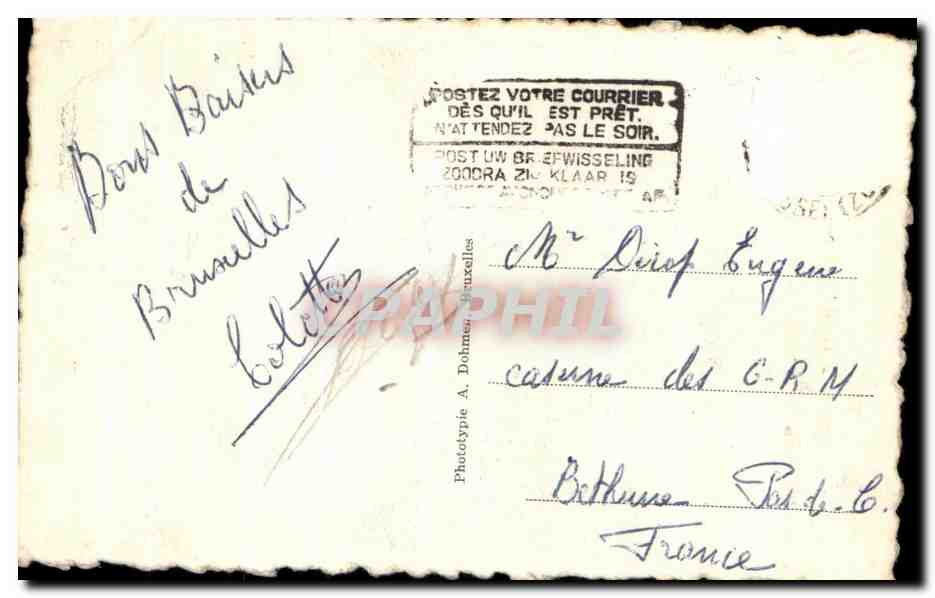 Bons Baisers
de
Bruxelles
Colette
POSTEZ VOTRE COURRIER
DÈS QU'IL EST PRÊT.
N'ATTENDEZ PAS LE SOIR.
POST UW BRIEFWISSELING
ZODRA ZIJ KLAAR IS
Phototypie A. Dohmen, Bruxelles
CPAPHIL
Mr Eugène
caserne des G-R M
Bethune Pas-de-C.
France